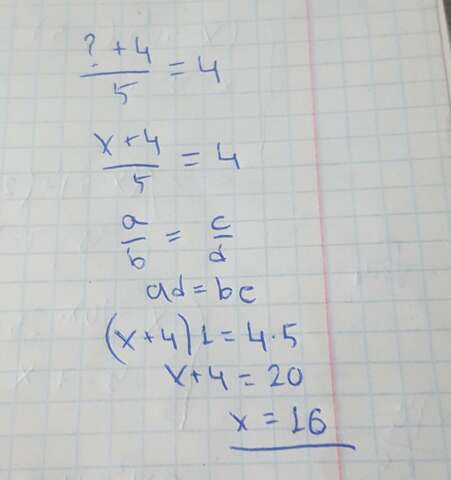 ? + 4 / 5 = 4
x + 4 / 5 = 4
a / b = c / d
ad = bc
(x + 4) 1 = 4 · 5
x + 4 = 20
x = 16